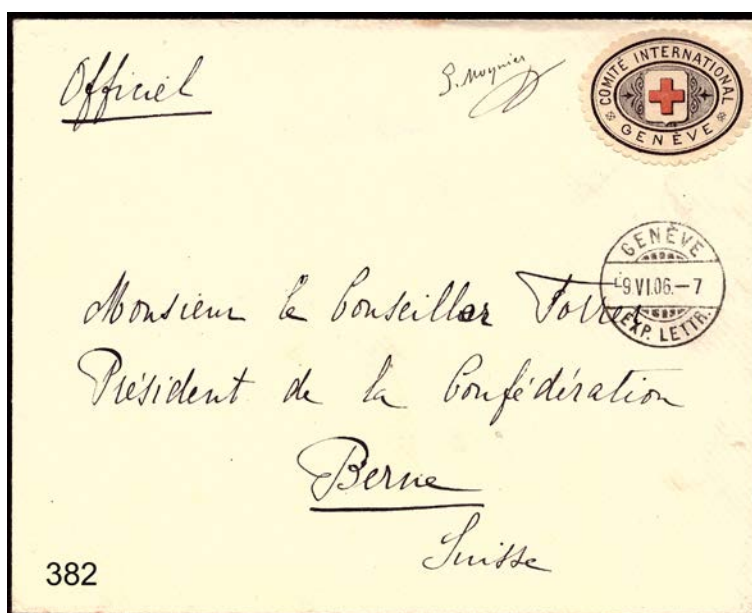 Officiel
G. Moynier
COMITÉ INTERNATIONAL
GENÈVE
GENÈVE
-9.VI.06.-7
EXP. LETTR.
Monsieur le Conseiller Forrer
Président de la Confédération
Berne
Suisse
382